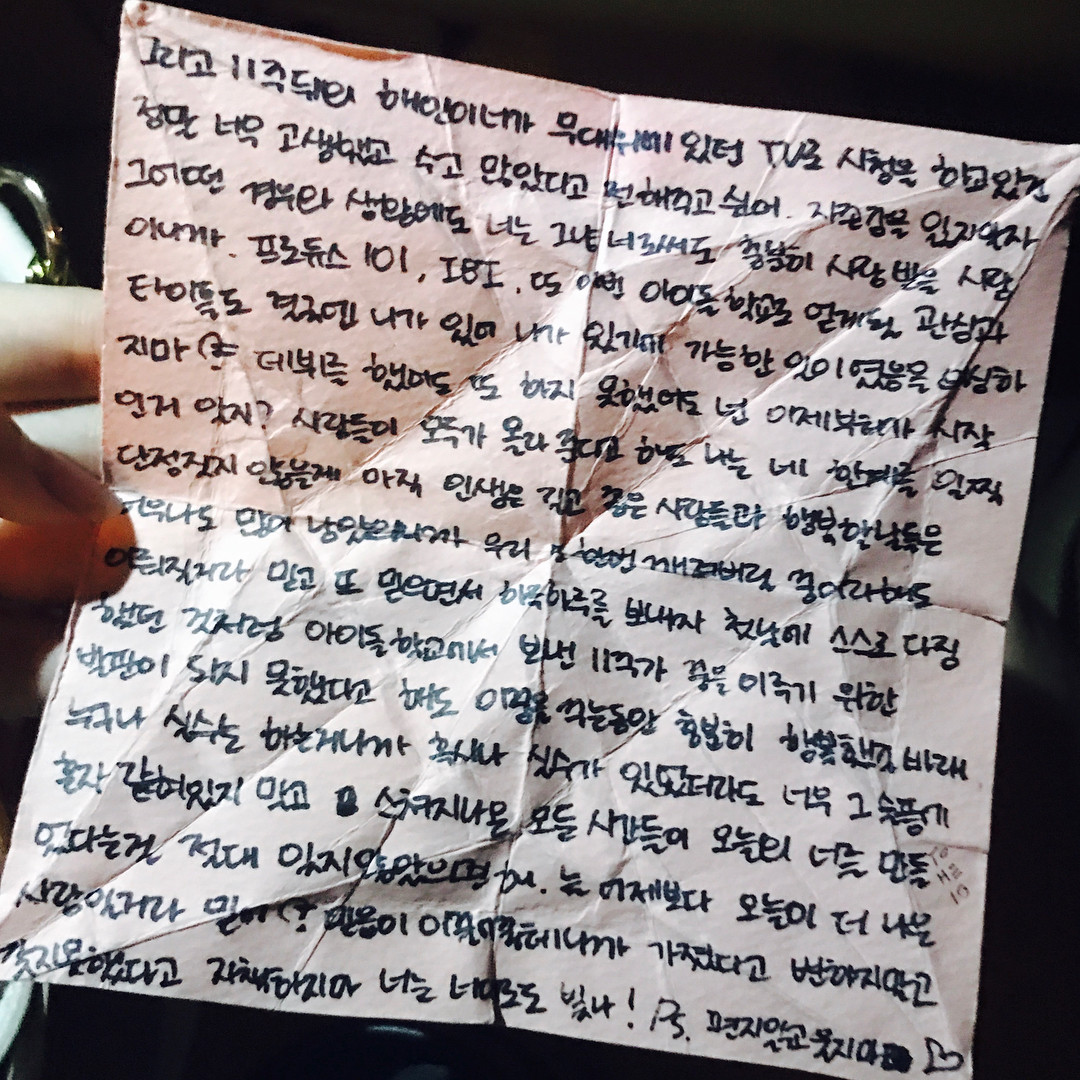 그리고 11주뒤의 해인이너가 무대위에 있던 TV로 시청을 하고있건
정말 너무 고생했고 수고 많았다고 전해주고싶어. 자존감을 잃지말자
그어떤 경우와 생황에도 너는 그냥 너로써도 충분히 사랑받을 사람
이니까. 프로듀스 101, IBI, 또 이번 아이돌학교로 얻게된 관심과
타이틀도 결국엔 니가 있어 니가 있기에 가능한 일이였음을 하
지마 데뷔를 했어도 또 하지 못했어도 넌 이제부터가 시작
인거 알지? 사람들이 모두가 몰라 준다고 해도 나는 네 한계를 일찍
단정짓지 않을게 아직 인생은 길고 좋은 사람들과 행복할날들은
너무나도 많이 남았으니까 우리 한번 깨져버릴 꿈이라해도
이뤄질거라 믿고 또 믿으면서 하루하루를 보내자 첫날에 스스로 다짐
했던 것처럼 아이돌학교에서 보낸 11주가 꿈을 이루기 위한
발판이 되지 못했다고 해도 이꿈을 꾸는동안 충분히 행복했길 바래
누구나 실수는 하는거니까 혹시나 실수가 있었더라도 너무 그 슬픔에
혼자 갇혀있지 말고 스쳐지나온 모든 시간들이 오늘의 너를 만들
었다는걸 절대 잊지않았으면 해. 늘 어제보다 오늘이 더 나은
사람일거라 믿어 믿음이 이뤄줄테니까 가졌다고 변하지말고
갖지못했다고 자책하지마 너는 너대로도 빛나! PS. 편지알고웃지마 ♡